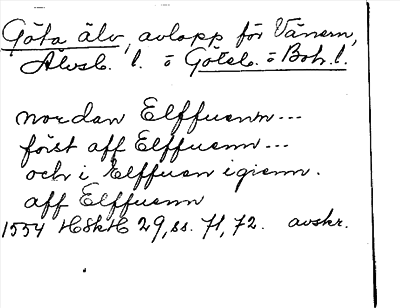 Göta älv, avlopp för Vänern,
Älvsb. l. o Göteb. o Boh. l.
nordan Elffuenn---
först aff Elffuenn---
och i Elffuen igienn.
aff Elffuenn
1554 HSkH 29, ss. 71, 72. avskr.